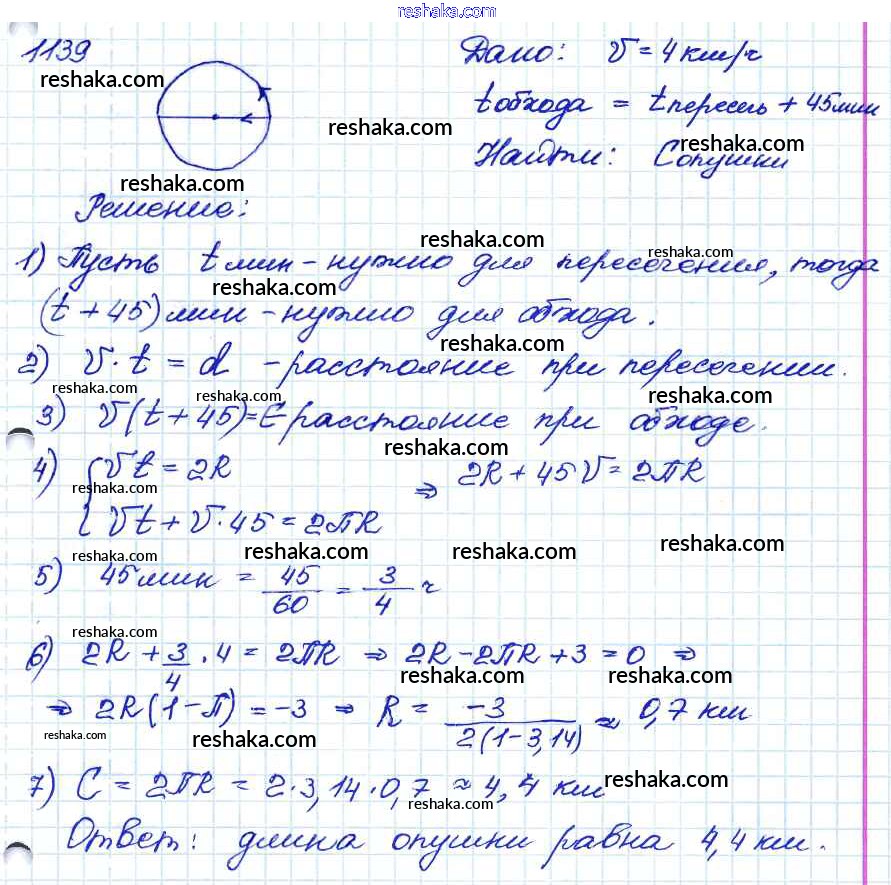 reshaka.com
1139
Дано: v = 4 км/ч
reshaka.com
t обхода = t пересеч + 45 мин
reshaka.com
reshaka.com
Найти: C опушки
reshaka.com
Решение:
reshaka.com
reshaka.com
1) Пусть t мин - нужно для пересечения, тогда
reshaka.com
(t + 45) мин - нужно для обхода.
reshaka.com
2) v · t = d - расстояние при пересечении.
reshaka.com reshaka.com reshaka.com
3) v(t + 45) = C расстояние при обходе.
reshaka.com
4) { vt = 2R ⇒ 2R + 45v = 2πR
reshaka.com
vt + v · 45 = 2πR
reshaka.com reshaka.com reshaka.com reshaka.com
5) 45 мин = 45/60 = 3/4 ч
reshaka.com
6) 2R + 3/4 · 4 = 2πR ⇒ 2R - 2πR + 3 = 0 ⇒
reshaka.com reshaka.com
⇒ 2R(1 - π) = -3 ⇒ R = -3/2(1-3,14) ≈ 0,7 км
reshaka.com reshaka.com reshaka.com
7) C = 2πR = 2 · 3,14 · 0,7 ≈ 4,4 км
reshaka.com
reshaka.com
Ответ: длина опушки равна 4,4 км.